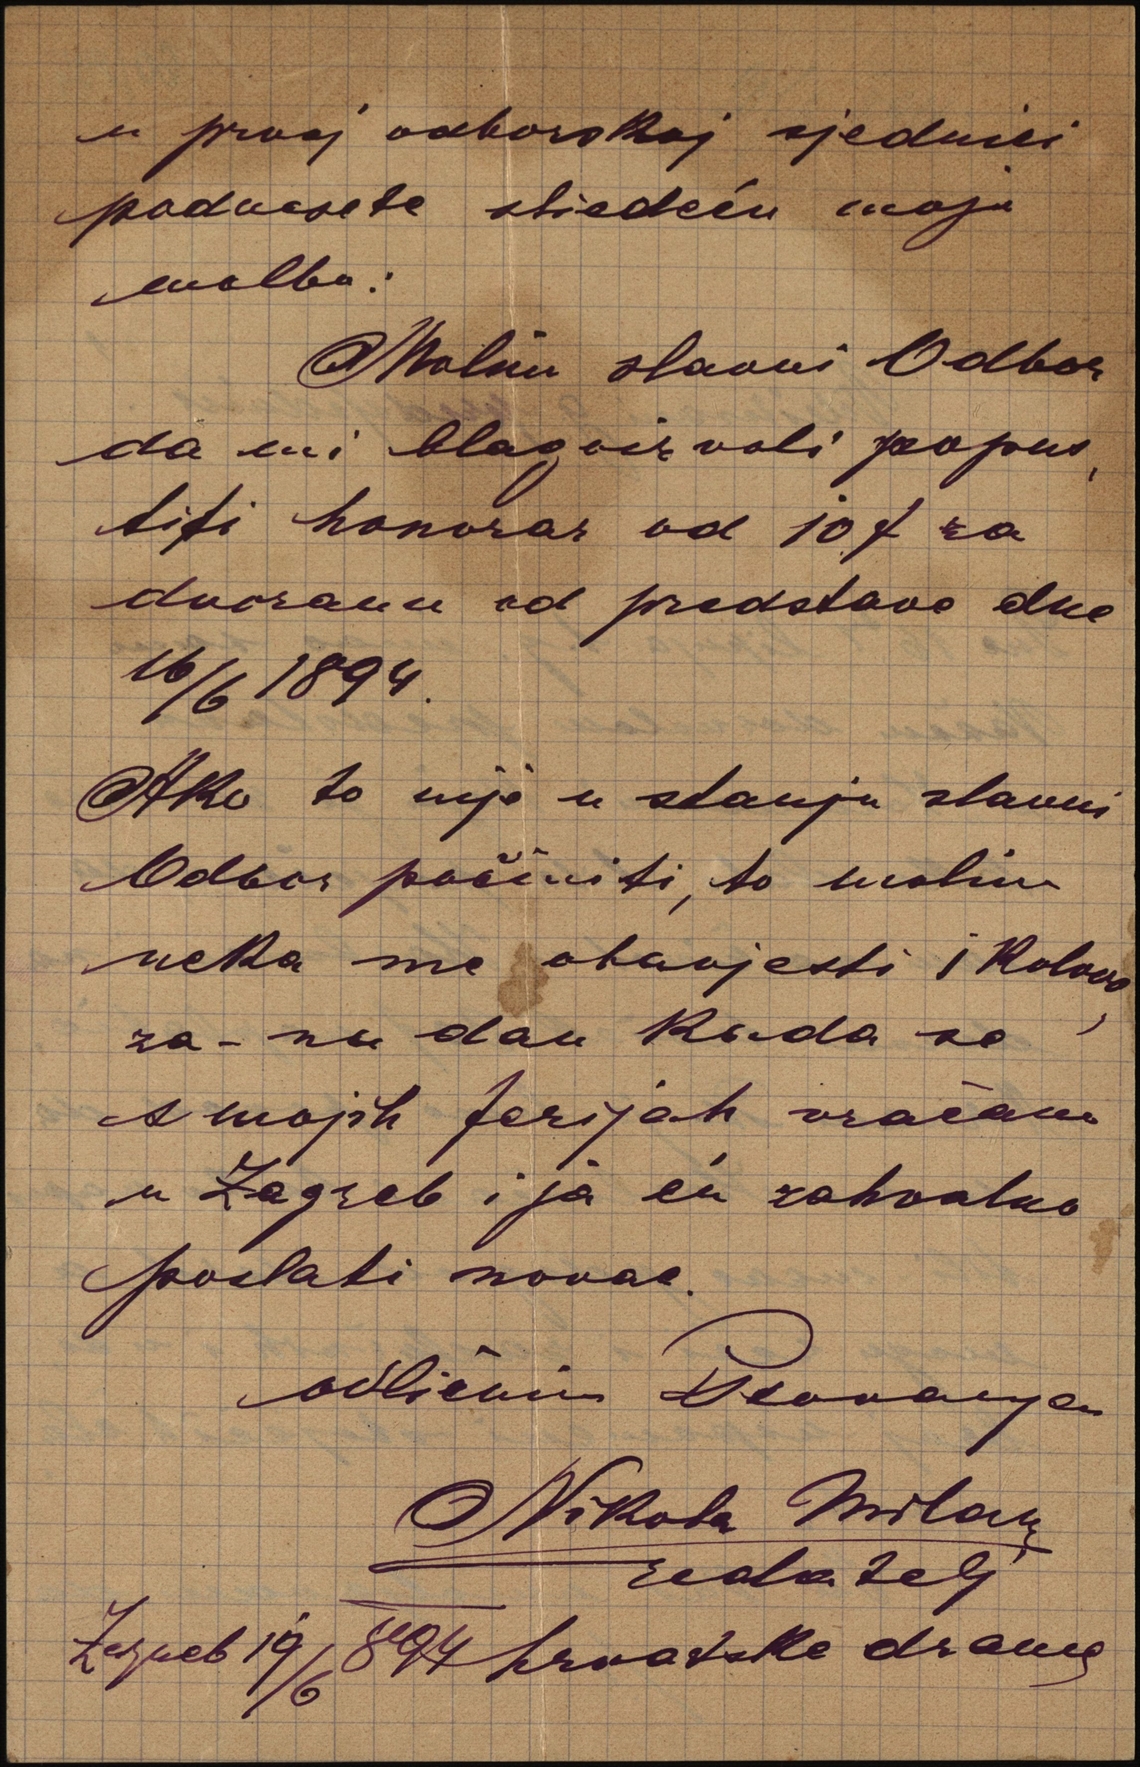 u prvoj odborskoj sjednici
podnesete sliedeću moju
molbu:
Molim slavni Odbor
da mi blagoizvoli popus,
titi honorar od 10 f za
dvoranu od predstave dne
16/6 1894.
Ako to nije u stanju slavni
Odbor počiniti, to molim
neka me obavjesti i kolovo,
za - na dan kada se
s mojih ferijah vraćam
u Zagreb i ja ću zahvalno
poslati novac.
odličnim
Nikola Milan
redatelj
Zagreb 19/6 894 hrvatske drame